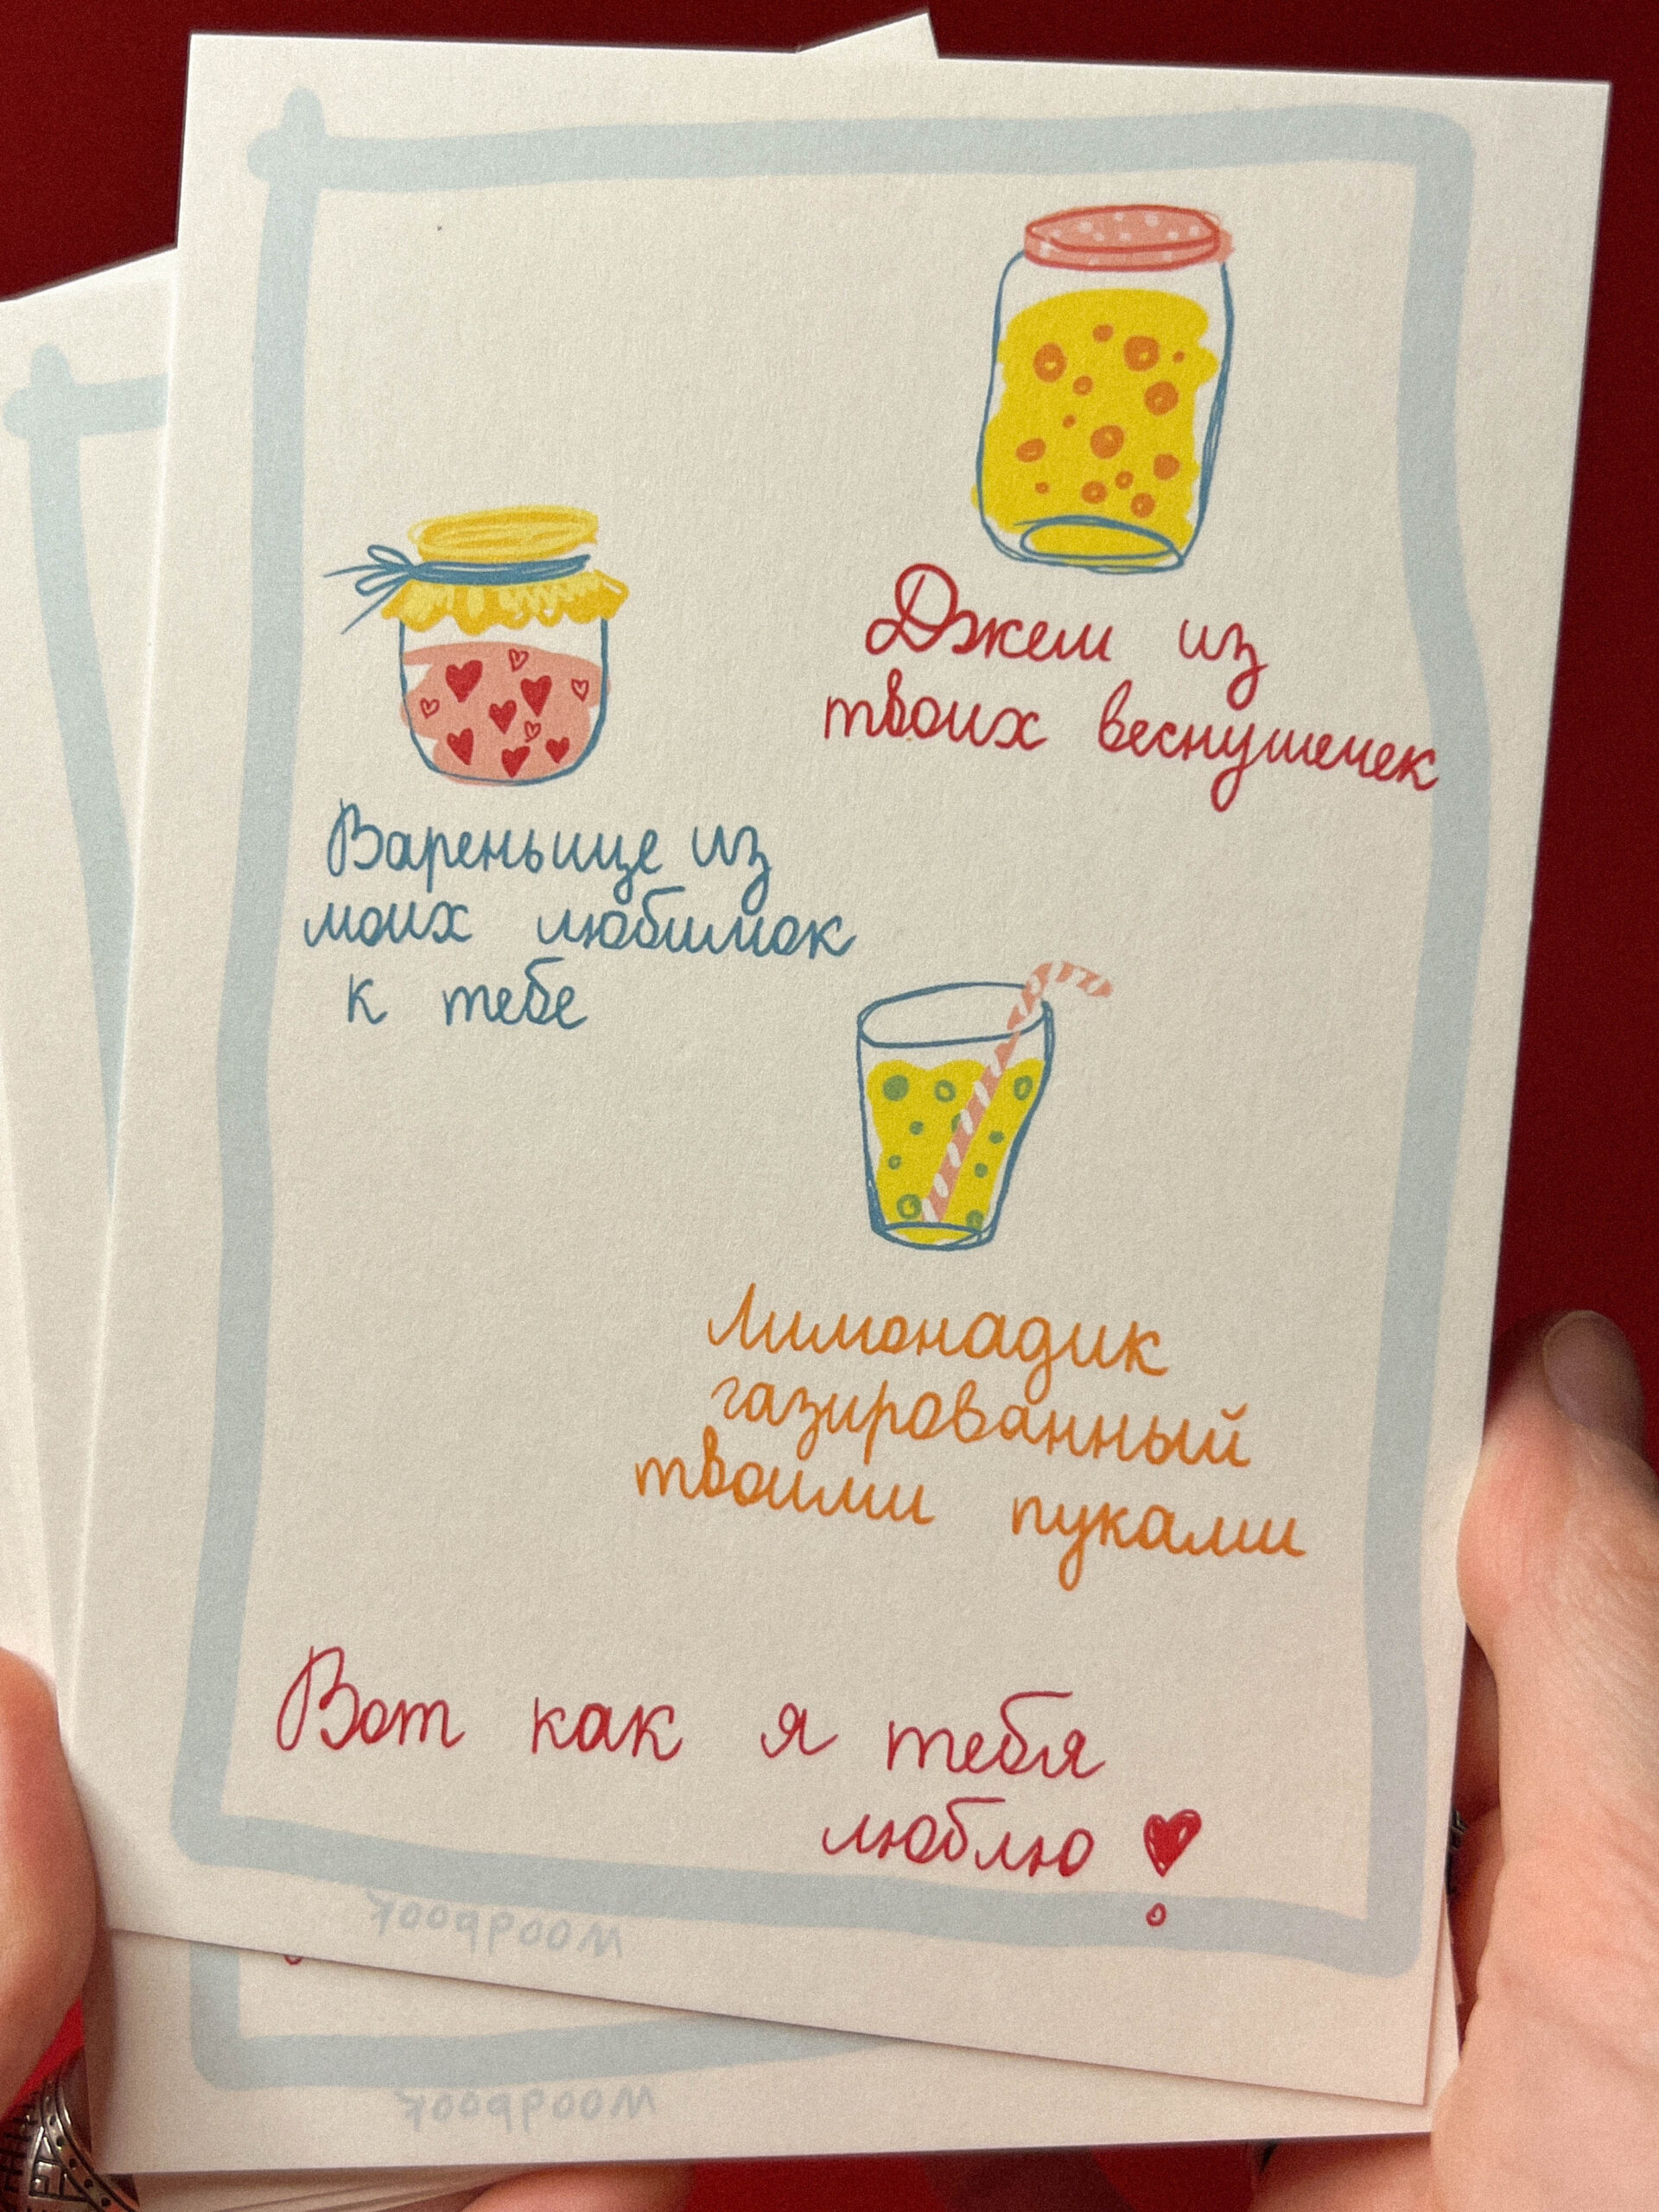 Джем из
твоих веснушечек
Вареньице из
моих любимок
к тебе
Лимонадик
газированный
твоими пуками
Вот как я тебя
люблю
woodbook
woodbook